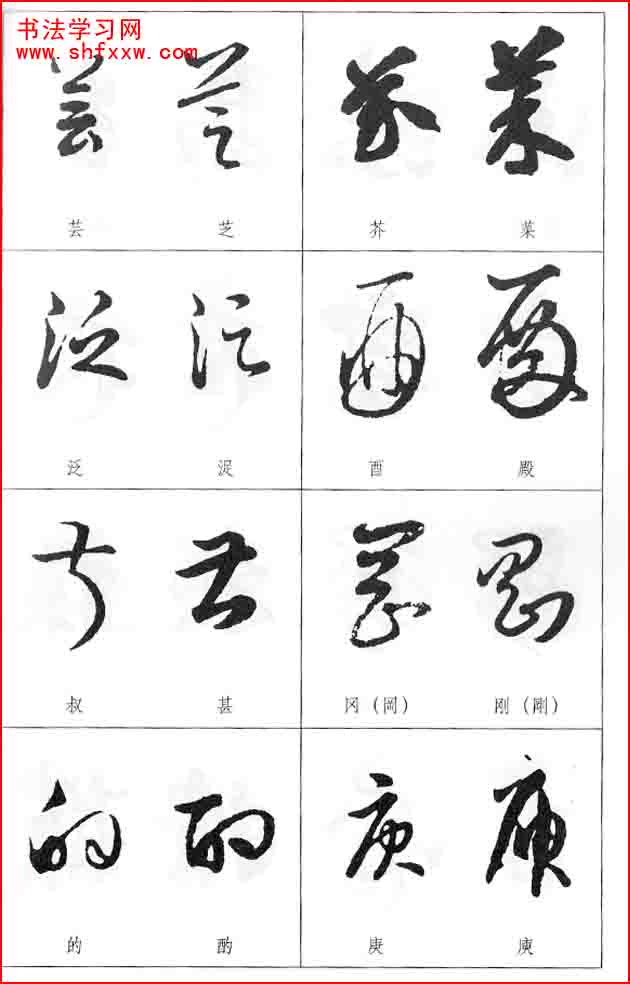 书法学习网
www.shfxxw.com
芸 芝 芥 菜
泛 浞 酉 殿
叔 甚 冈（岡） 刚（剛）
的 酌 庚 庾